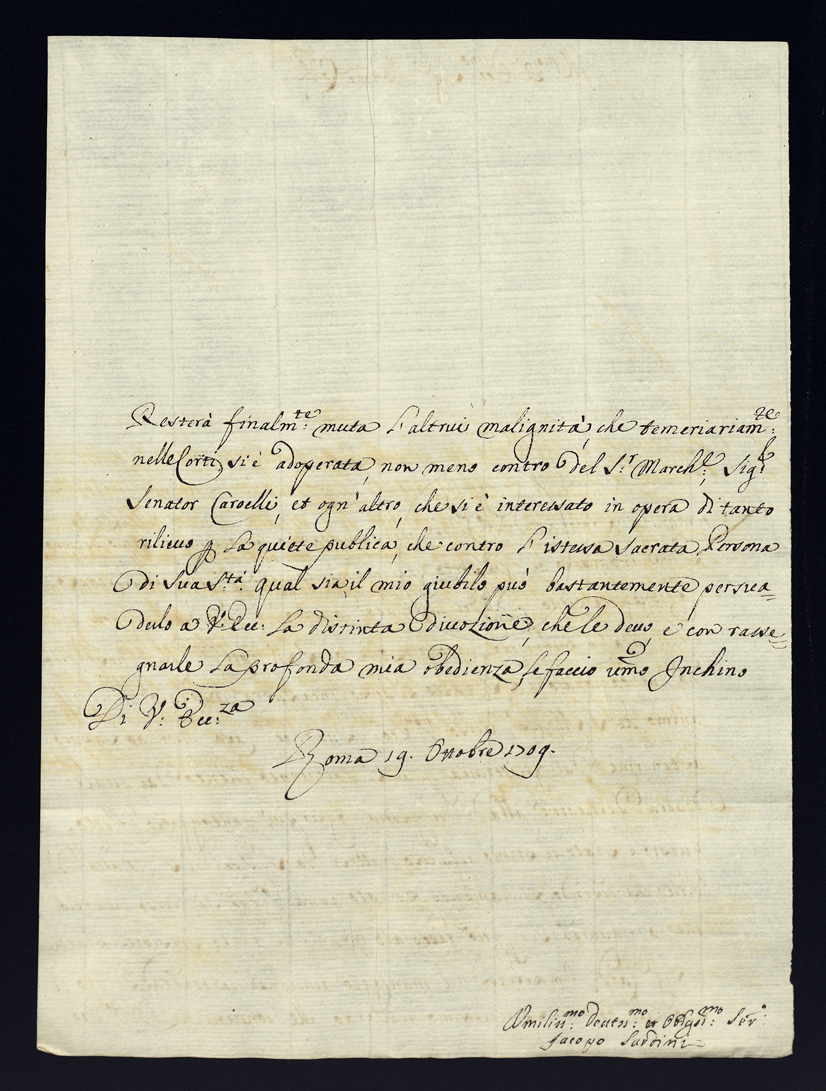 Resterà finalm:te muta l'altrui malignità, che temeriariam:te
nelle Corti si è adoperata, non meno contro del S:r March:l, Sig:l
Senator Caroelli, et ogn'altro, che si è interessato in opera di tanto
rilievo p la quiete publica, che contro l'istessa Sacrata Persona
di Sua S:tà: qual sia il mio giubilo può bastantemente persua=
derlo a V: Ecc: la distinta divozione, che le devo, e con rasse=
gnarle la profonda mia obedienza, le faccio umo Inchino
Di V: Ecc:za
Roma 19. Ottobre 1709.
Umiliss:mo Devotis:mo et Obligs:mo Ser:e
Jacopo Sardini